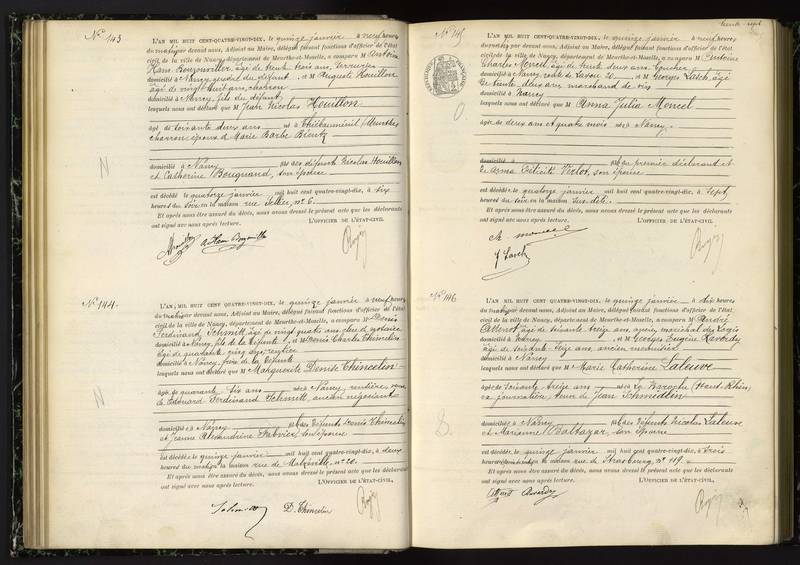 N° 143
L'AN MIL HUIT CENT QUATRE-VINGT-DIX, le quinze janvier à neuf heures
du matin par devant nous, Adjoint au Maire, délégué faisant fonctions d'officier de l'état
civil de la ville de Nancy, département de Meurthe-et-Moselle, a comparu M Antoine
âgé de trente trois ans,
domicilié à Nancy, gendre du défunt, et M Auguste Houillon
âgé de vingt huit ans, charron
domicilié à Nancy, fils du défunt
lesquels nous ont déclaré que M Jean Nicolas Houillon
âgé de soixante deux ans né à Thiébauménil (Meurthe)
charron époux d Marie Barbe
domicilié à Nancy fils des défunts Nicolas Houillon
et Catherine Bouquard, son épouse
est décédé le quatorze janvier mil huit cent quatre-vingt-dix, à six
heures du soir en la maison rue n° 6.
Et après nous être assuré du décès, nous avons dressé le présent acte que les déclarants
ont signé avec nous après lecture. L'OFFICIER DE L'ÉTAT-CIVIL
N
N° 144.
L'AN MIL HUIT CENT QUATRE-VINGT-DIX, le quinze janvier à neuf heures
du matin par devant nous, Adjoint au Maire, délégué faisant fonctions d'officier de l'état
civil de la ville de Nancy, département de Meurthe-et-Moselle, a comparu M Denis
Ferdinand Schmitt, âgé de vingt quatre ans, clerc de notaire
domicilié à Nancy, fils de la défunte, et M Denis Charles Thincelin
âgé de quarante cinq ans, rentier
domicilié à Nancy, frère de la défunte
lesquels nous ont déclaré que M Marguerite Denise Thincelin
âgée de quarante six ans née à Nancy, rentière, veuve
de Edouard Ferdinand Schmitt, ancien négociant
domiciliée à Nancy fille des défunts Denis Thincelin
et Jeanne Alexandrine Fabvier, son épouse
est décédée le quinze janvier mil huit cent quatre-vingt-dix, à deux
heures du matin en la maison rue de Malzéville, n° 20.
Et après nous être assuré du décès, nous avons dressé le présent acte que les déclarants
ont signé avec nous après lecture. L'OFFICIER DE L'ÉTAT-CIVIL,
N
D. Thincelin
trente-sept
N° 145
RÉPUBLIQUE FRANÇAISE
L'AN MIL HUIT CENT QUATRE-VINGT-DIX, le quinze janvier à neuf heures
du matin par devant nous, Adjoint au Maire, délégué faisant fonctions d'officier de l'état
civil de la ville de Nancy, département de Meurthe-et-Moselle, a comparu M Antoine
Charles Moncel, âgé de trente deux ans,
domicilié à Nancy, 20, et M Georges
de trente deux ans marchand de vins
domicilié à Nancy
lesquels nous ont déclaré que M Anna Julie Moncel
âgée de deux ans et quatre mois née à Nancy
domiciliée à fille du premier déclarant et
de Anna Félicité son épouse
est décédée le quatorze janvier mil huit cent quatre-vingt-dix, à sept
heures du soir en la maison sus-dite.
Et après nous être assuré du décès, nous avons dressé le présent acte que les déclarants
ont signé avec nous après lecture. L'OFFICIER DE L'ÉTAT-CIVIL
N° 146
L'AN MIL HUIT CENT QUATRE-VINGT-DIX, le quinze janvier à dix heures
du matin par devant nous, Adjoint au Maire, délégué faisant fonctions d'officier de l'état
civil de la ville de Nancy, département de Meurthe-et-Moselle, a comparu M André
âgé de soixante treize ans, ancien maréchal des logis
domicilié à Nancy, et M Georges Eugène
âgé de soixante seize ans, ancien menuisier
domicilié à Nancy
lesquels nous ont déclaré que M Marie Catherine Laleuve
âgée de soixante treize ans née à la Baroche (Haut-Rhin)
veuve de Jean Schmidlin
domiciliée à Nancy fille des défunts Nicolas Laleuve
et Marianne Baltazar, son épouse
est décédée le quinze janvier mil huit cent quatre-vingt-dix, à trois
heures du matin en la maison rue de Strasbourg n° 119.
Et après nous être assuré du décès, nous avons dressé le présent acte que les déclarants
ont signé avec nous après lecture. L'OFFICIER DE L'ÉTAT-CIVIL,